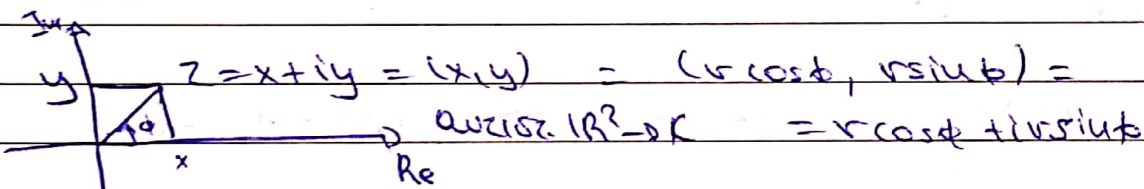 Im
y z = x + iy = (x, y) = (r cosϕ, r sinϕ) =
ϕ αντιστ. ℝ² → ℂ = r cosϕ + i r sinϕ
x Re